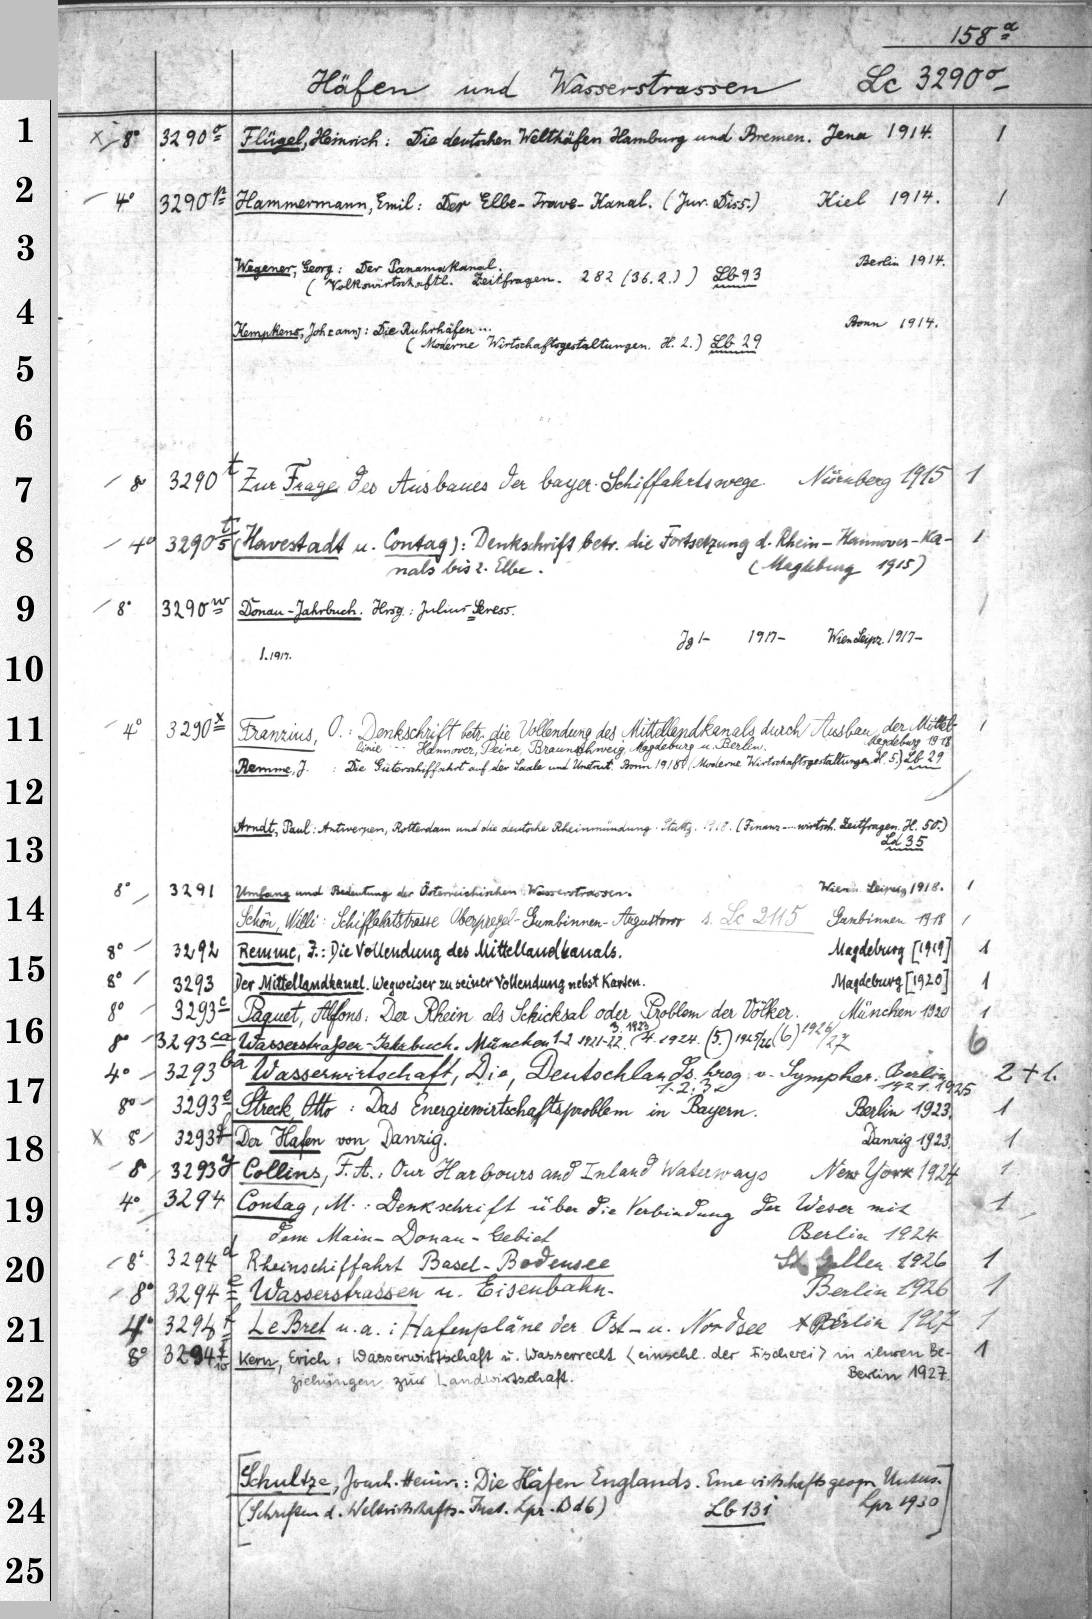 158 a
Häfen und Wasserstrassen Lc 3290 o
1
× 8° 3290 o Flügel, Heinrich: Die deutschen Welthäfen Hamburg und Bremen. Jena 1914. 1
2
4° 3290 p Hammermann, Emil: Der Elbe-Trave-Kanal. (Jur. Diss.) Kiel 1914. 1
3
Wegener, Georg: Der Panamakanal. Berlin 1914.
(Volkswirtschaftl. Zeitfragen. 282 (36.2.)) Lb 93
4
Kempkens, Joh[ann]: Die Ruhrhäfen... Bonn 1914.
(Moderne Wirtschaftsgestaltungen. H. 2.) Lb 29
5
6
7
8° 3290 t Zur Frage des Ausbaues der bayer. Schiffahrtswege. Nürnberg 1915 1
8
4° 3290 t/5 (Havestadt u. Contag): Denkschrift betr. die Fortsetzung d. Rhein-Hannover-Ka- 1
nals bis z. Elbe. (Magdeburg 1915)
9
8° 3290 w Donau-Jahrbuch. Hrsg.: Julius
Jg 1- 1917- Wien Leipz. 1917-
1.1917.
10
11
4° 3290 x Franzius, O.: Denkschrift betr. die Vollendung des Mittellandkanals durch Ausbau der Mittel- 1
linie ... Hannover, Peine, Braunschweig, Magdeburg u. Berlin. Magdeburg 1918
Remme, J.: Die Güterschiffahrt auf der Saale und Unstrut. Bonn 1918 (Moderne Wirtschaftsgestaltungen H. 5.) Lb 29
12
Arndt, Paul: Antwerpen, Rotterdam und die deutsche Rheinmündung. Stuttg. 1918. (Finanz-... wirtsch. Zeitfragen. H. 50.)
13
Ld 35
8° 3291 Umfang und Bedeutung der Österreichischen Wasserstrassen. Wien u. Leipzig 1918. 1
14
Schön, Willi: Schiffahrtstrasse Oberpregel-Gumbinnen- s. Lc 2115 Gumbinnen 1918 1
8° 3292 Remme, J.: Die Vollendung des Mittellandkanals. Magdeburg [1919] 1
15
8° 3293 Der Mittellandkanal. Wegweiser zu seiner Vollendung nebst Karten. Magdeburg [1920] 1
8° 3293 c Paquet, Alfons: Der Rhein als Schicksal oder Problem der Völker. München 1920 1
16
8° 3293 ca Wasserstraßen-Jahrbuch. München 1-2 1921-22. 3. 1923 (4. 1924. (5.) 1925/26 (6) 1926/27 6
4° 3293 ba Wasserwirtschaft, Die, Deutschlands. hrsg. v. Sympher. Berlin 2+1.
1. 2. 3 1921. 1925
17
8° 3293 e Streck, Otto: Das Energiewirtschaftsproblem in Bayern. Berlin 1923. 1
18
× 8° 3293 f Der Hafen von Danzig. Danzig 1923. 1
8° 3293 g Collins, F. A.: Our Harbours and Inland Waterways New York 1924 1
19
4° 3294 Contag, M.: Denkschrift über die Verbindung der Weser mit 1
dem Main-Donau-Gebiet Berlin 1924
20
8° 3294 d Rheinschiffahrt Basel-Bodensee St. Gallen 1926 1
8° 3294 e Wasserstrassen u. Eisenbahn. Berlin 1926 1
21
4° 3294 f Le Bret u. a.: Hafenpläne der Ost- u. Nordsee Berlin 1927 1
8° 3294 f/10 Kern, Erich: Wasserwirtschaft u. Wasserrecht <einschl. der Fischerei> in ihren Be- 1
ziehungen zur Landwirtschaft. Berlin 1927.
22
23
[Schultze, Joach. Heinr.: Die Häfen Englands. Eine wirtschaftsgeogr. Unters.
24
(Schriften d. Weltwirtschafts-Inst. Lpz. Bd 6) Lb 131 Lpz 1930]
25